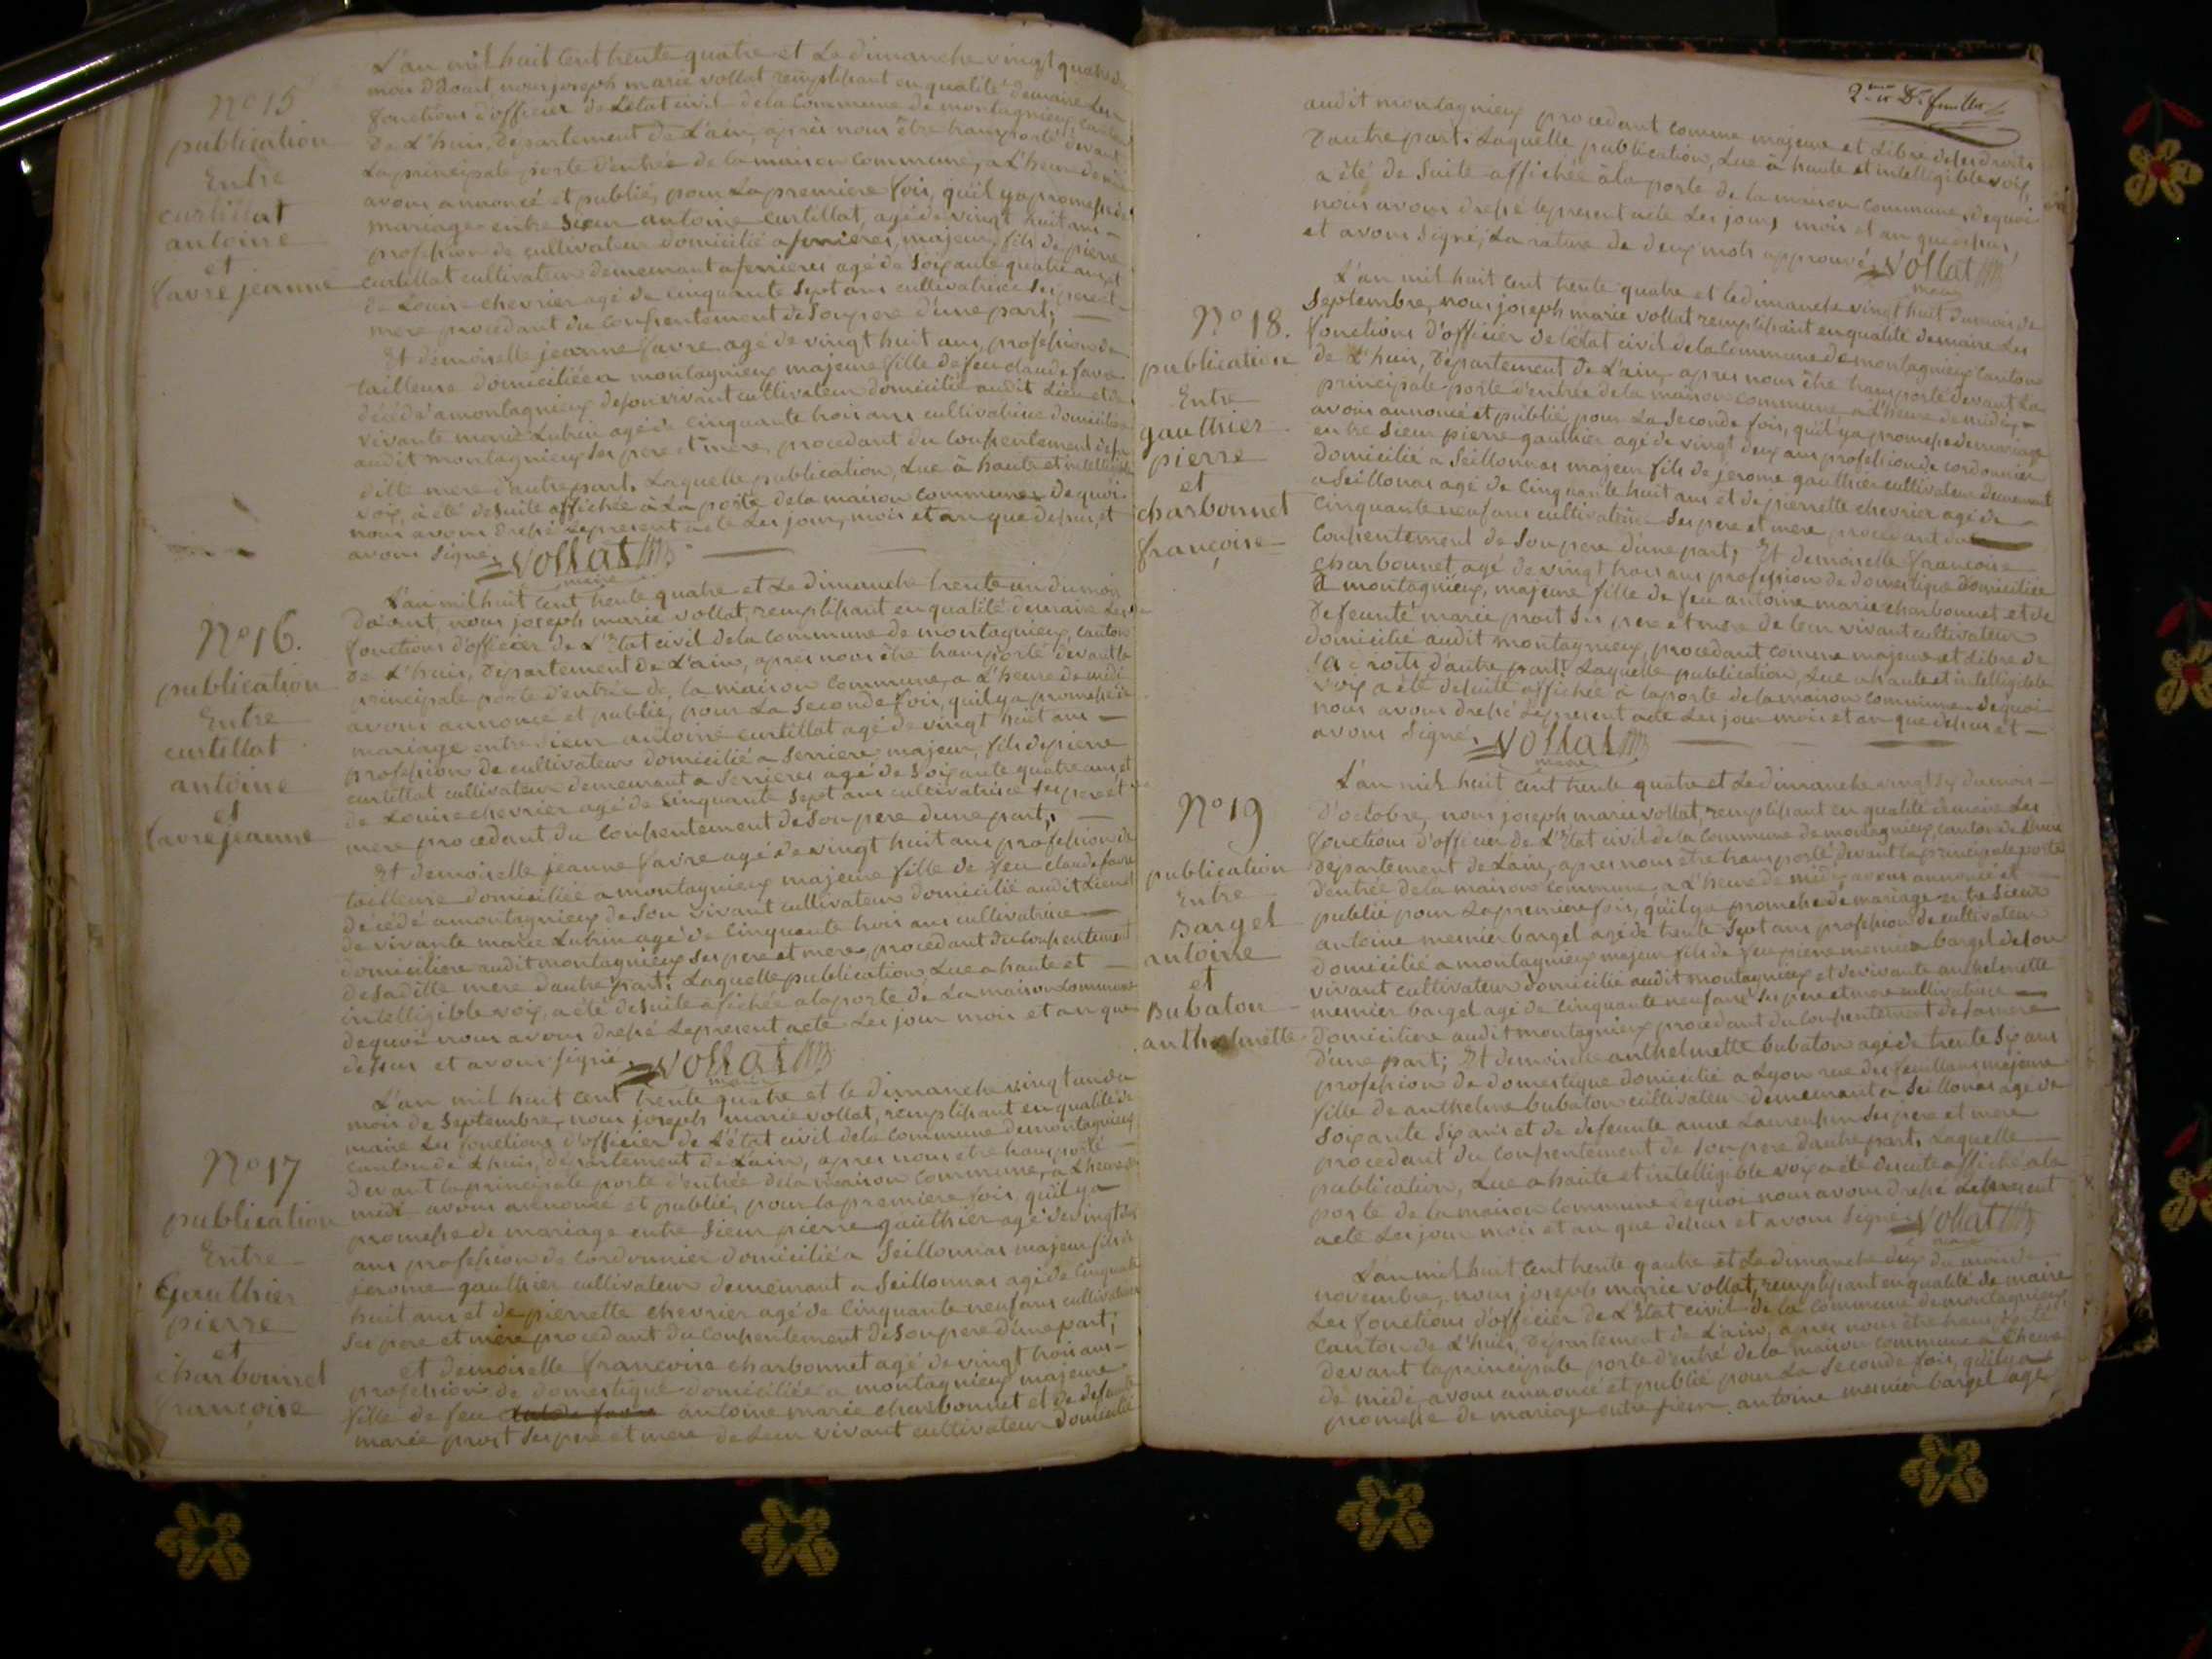 L'an mil huit cent trente quatre et Le dimanche vingt quatre du
mois D'Aout, nous joseph marie vollat remplissant en qualité de maire Les
fonctions d'officier de L'état civil de la Commune de montagnieux, canton
De L'huis, département de L'ain, après nous être transporté devant
La principale porte d'entrée de la maison commune, a L'heure de midi
avons annoncé et publié, pour La premiere fois, qu'il y a promesse de
mariage entre Sieur antoine curtillat, agé de vingt huit ans
profession de cultivateur domicilié a serrieres, majeur, fils de pierre
curtillat cultivateur demeurant a serrieres agé de Soixante quatre ans et
de Louise chevrier agé de cinquante Sept ans cultivatrice Ses pere et
mere procedant du consentement de Son pere d'une part;
Et demoiselle jeanne favre agé de vingt huit ans, profession de
tailleuse domiciliée a montagnieux majeure fille de feu claude favre
décédé a montagnieux de son vivant cultivateur domicilié audit Lieu et de
vivante marie Lubrin agé de cinquante trois ans cultivatrice domiciliée
audit montagnieux Ses pere et mere, procedant du consentement de sa
ditte mere d'autre part. Laquelle publication, Lue à haute et intelligible
voix, à été de suite affichée à La porte de la maison commune, de quoi
nous avons dressé Le present acte Les jour, mois et an que dessus, et
avons Signé. vollat
maire
N° 15
publication
Entre
curtillat
antoine
et
favre jeanne
L'an mil huit cent trente quatre et Le dimanche trente un du mois
D'aout, nous joseph marie vollat, remplissant en qualité de maire Les
fonctions d'officier de L'Etat civil de la Commune de montagnieux, canton
De L'huis, Département de L'ain, apres nous être transporté devant la
principale porte d'entrée de la maison commune, a L'heure de midi
avons annoncé et publié, pour La Seconde fois, qu'il y a promesse de
mariage entre Sieur antoine curtillat agé de vingt huit ans
profession de cultivateur domicilié a Serrieres majeur, fils de pierre
curtillat cultivateur demeurant a Serrieres agé de Soixante quatre ans et
de Louise chevrier agé de cinquante Sept ans cultivatrice Ses pere et
mere procedant du consentement de Son pere d'une part;
Et demoiselle jeanne favre agé de vingt huit ans profession de
tailleuse domiciliée a montagnieux majeure fille de feu claude favre
décédé a montagnieux de Son vivant cultivateur domicilié audit Lieu et
de vivante marie Lubrin agé de cinquante trois ans cultivatrice
domiciliere audit montagnieux Ses pere et mere, procedant du consentement
de Sa ditte mere d'autre part. Laquelle publication Lue a haute et
intelligible voix, a été de suite afichée a la porte de La maison commune
de quoi nous avons dressé Le present acte Les jour mois et an que
dessus et avons signé. vollat
maire
N° 16.
publication
Entre
curtillat
antoine
et
favre jeanne
L'an mil huit cent trente quatre et le dimanche vingt un du
mois de Septembre, nous joseph marie vollat, remplissant en qualité de
maire Les fonctions d'officier de L'état civil de la Commune de montagnieux
canton de L'huis, département de L'ain, apres nous etre transporté
devant la principale porte d'entrée de la maison commune, a L'heure de
midi avons annoncé et publié, pour la premiere fois, qu'il y a
promesse de mariage entre Sieur pierre gauthier agé de vingt deux
ans profession de cordonnier domicilié a Seillonnas majeur fils de
jerome gauthier cultivateur demeurant a Seillonnas agé de cinquante
huit ans et de pierrette chevrier agé de cinquante neuf ans cultivatrice
Ses pere et mere procedant du consentement de Son pere d'une part;
et demoiselle francoise charbonnet agé de vingt trois ans
profession de domestique domiciliée a montagnieux majeure
fille de feu antoine marie charbonnet et de defunte
marie prost Ses pere et mere de Leur vivant cultivateur domicilié
N° 17
publication
Entre
Gauthier
pierre
et
charbonnet
francoise
audit montagnieux procedant comme majeure et Libre de Ses droits
D'autre part. Laquelle publication, Lue à haute et intelligible voix,
a été de Suite affichée à la porte de la maison commune, de quoi
nous avons dressé le present acte Les jour, mois et an que dessus,
et avons Signé, La rature de deux mots approuvé. vollat
maire
L'an mil huit cent trente quatre et le dimanche vingt huit du mois de
Septembre, nous joseph marie vollat remplissant en qualité de maire Les
fonctions d'officier de L'état civil de la Commune de montagnieux canton
de L'huis, Département de L'ain, apres nous être transporté devant La
principale porte d'entrée de la maison commune a L'heure de midi,
avons annoncé et publié pour La Seconde fois, qu'il y a promesse de mariage
entre Sieur pierre gauthier agé de vingt deux ans profession de cordonnier
domicilié a Seillonnas majeur fils de jerome gauthier cultivateur demeurant
a Seillonas agé de cinquante huit ans et de pierrette chevrier agé de
cinquante neuf ans cultivatrice Ses pere et mere, procedant du
consentement de Son pere d'une part; Et demoiselle francoise
charbonnet agé de vingt trois ans profession de domestique domiciliée
a montagnieux, majeure fille de feu antoine marie charbonnet et de
defeunte marie prost Ses pere et mere de leur vivant cultivateur
domicilié audit montagnieux, procedant comme majeure et Libre de
Ses droits d'autre part. Laquelle publication, Lue a haute et intelligible
voix a été de suite affichée a la porte de la maison commune de quoi
nous avons dressé Le present acte Les jour mois et an que dessus et
avons Signé. vollat
maire
N° 18.
publication
Entre
gauthier
pierre
et
charbonnet
françoise
L'an mil huit cent trente quatre et Le dimanche vingt six du mois
D'octobre, nous joseph marie vollat, remplissant en qualité de maire Les
fonctions d'officier de L'Etat civil de la Commune de montagnieux, canton de L'huis
Département de L'ain, apres nous être transporté devant la principale porte
d'entrée de la maison commune, a L'heure de midi, avons annoncé et
publié pour La premiere fois, qu'il y a promesse de mariage entre Sieur
antoine mesnier bargel agé de trente Sept ans profession de cultivateur
domicilié a montagnieux majeur fils de feu pierre mesnier bargel de Son
vivant cultivateur domicilié audit montagnieux et de vivante anthelmette
mesnier bargel agé de cinquante neuf ans Ses pere et mere cultivatrice
domiciliere audit montagnieux procedant du consentement de Sa mere
d'une part; Et demoiselle anthelmette bubaton agé de trente Six ans
profession de domestique domicilié a Lyon rue des feuillans majeure
fille de anthelme bubaton cultivateur demeurant a Seillonas agé de
Soixante Six ans et de defeunte anne Ses pere et mere
procedant du consentement de Son pere d'autre part. Laquelle
publication, Lue a haute et intelligible voix a été de suite affiché a la
porte de la maison commune de quoi nous avons dressé Le present
acte Les jour mois et an que dessus et avons Signé. vollat
maire
N° 19
publication
Entre
Bargel
antoine
et
Bubaton
anthelmette
L'an mil huit cent trente quatre et Le dimanche deux du mois de
novembre, nous joseph marie vollat, remplissant en qualité de maire
Les fonctions d'officier de L'Etat civil de la commune de montagnieux,
canton de L'huis, Département de L'ain, apres nous être transporté
devant la principale porte d'entré de la maison commune a L'heure
de midi, avons annoncé et publié pour La Seconde fois, qu'il y a
promesse de mariage entre sieur antoine mesnier bargel agé